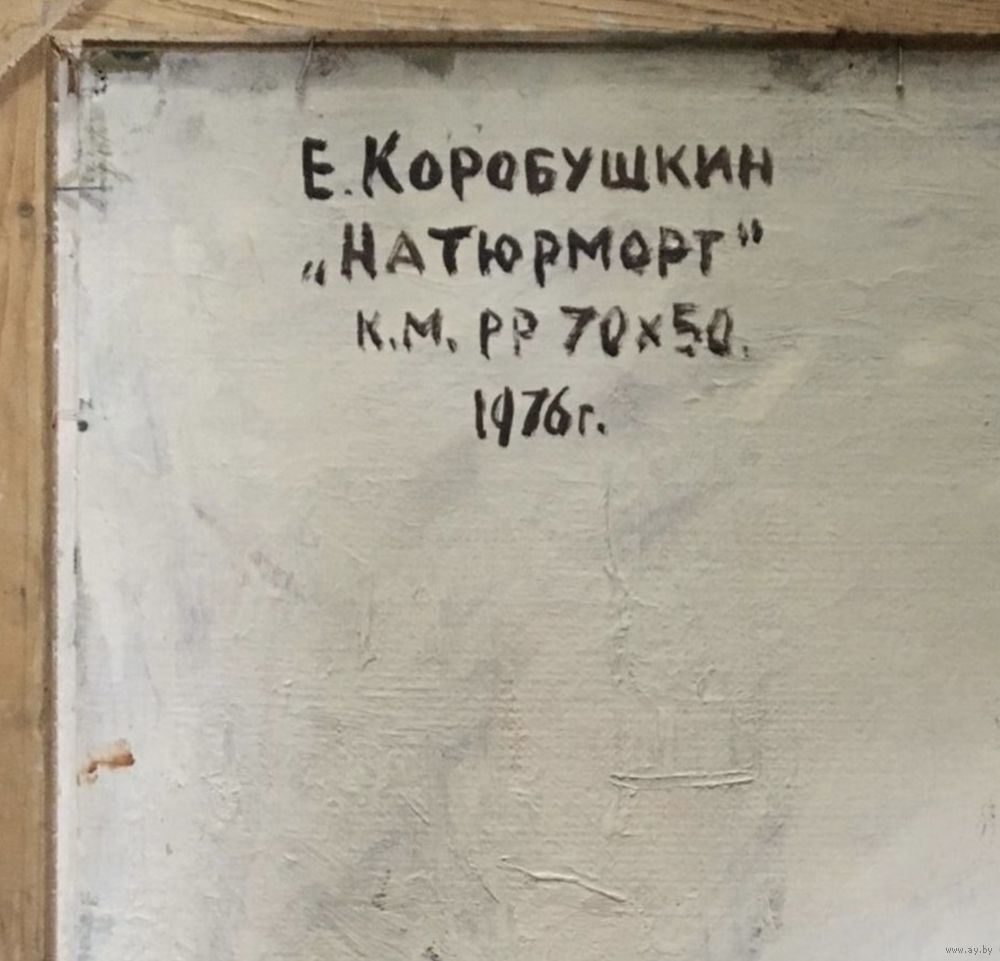 Е. Коробушкин
„Натюрморт"
К.М. РР 70х50.
1976г.
www.ay.by